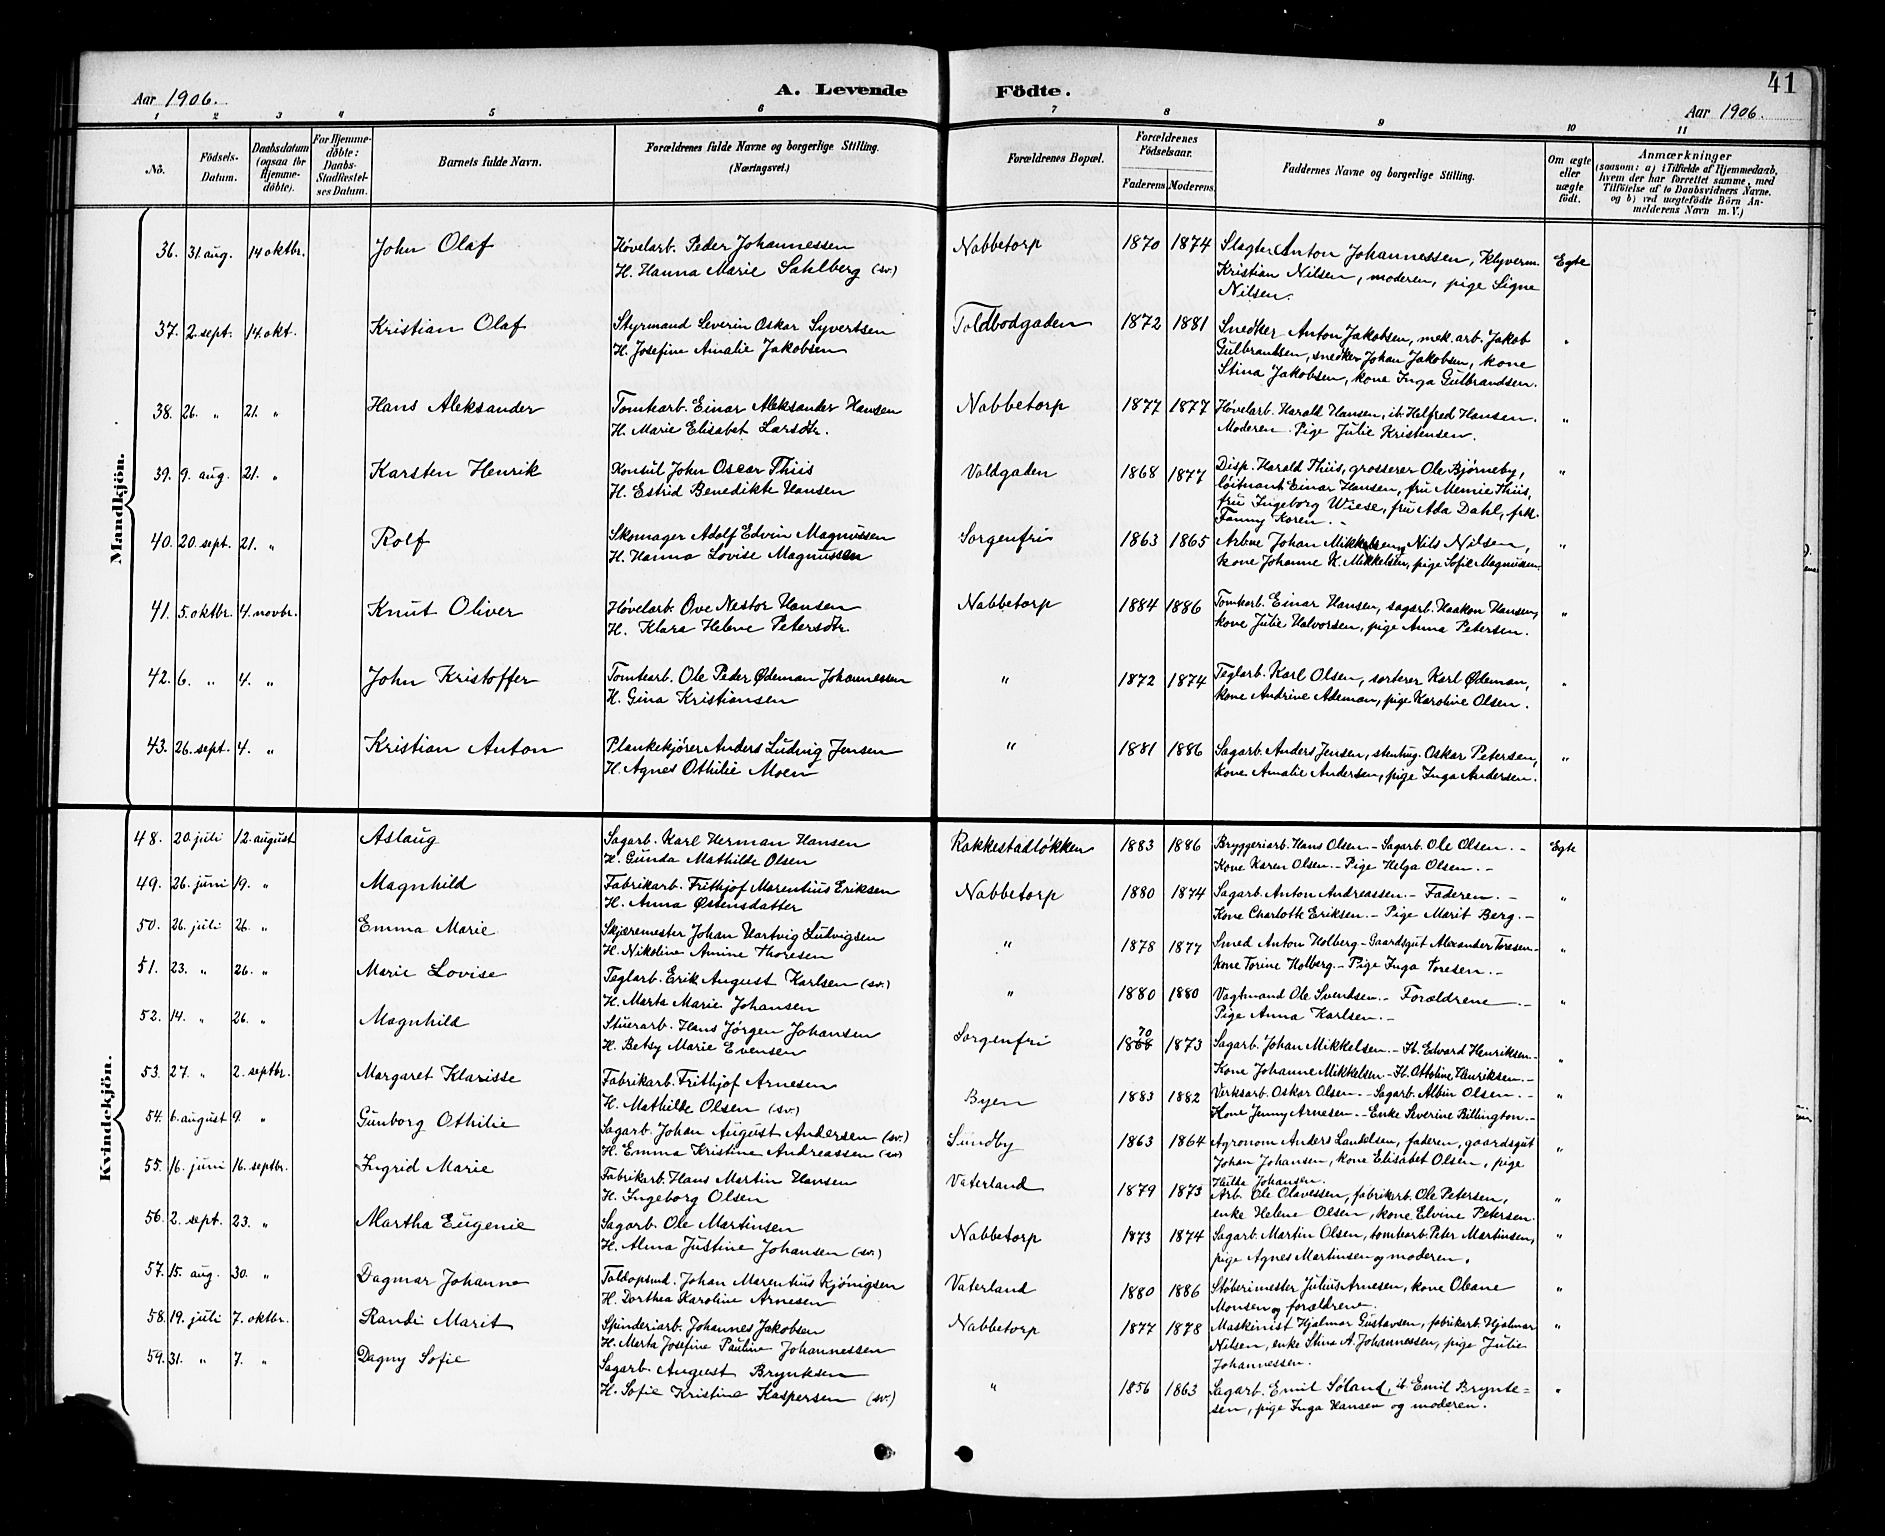 41
Aar 1906. A. Levende Födte. Aar 1906.
1 2 3 4 5 6 7 8 9 10 11
No. Födsels-Datum. Daabsdatum (ogsaa for Hjemme-döbte). For Hjemme-döbte: Daabs-Stadfæstel-ses Datum. Barnets fulde Navn. Forældrenes fulde Navne og borgerlige Stilling. (Næringsvei.) Forældrenes Bopæl. Forældrenes Födselsaar. Faderens Moderens. Faddernes Navne og borgerlige Stilling. Om ægte eller uægte födt. Anmærkninger (saasom: a) i Tilfælde af Hjemmedaab, hvem der har forrettet samme, med Tilföielse af to Daabsvidners Navne, og b) ved uægtefödte Börn An-melderens Navn m. V.)
Mandkjön.
36. 31. aug. 14 oktbr. John Olaf Høvelarb. Peder Johannessen Nabbetorp 1870 1874 Slagter Anton Johannessen, Klyverm. Egte
H. Hanna Marie Sahlberg (sv.) Kristian Nilsen, moderen, pige Signe
Nilsen.
37. 2. sept. 14 okt. Kristian Olaf Styrmand Severin Oskar Syvertsen Toldbodgaden 1872 1881 Snedker Anton Jakobsen, mek. arb. Jakob "
H. Josefine Amalie Jakobsen Gulbrandsen, snedker Johan Jakobsen, kone
Stina Jakobsen, kone Inga Gulbrandsen.
38. 26. " 21. " Hans Aleksander Tomtearb. Einar Aleksander Hansen Nabbetorp 1877 1877 Høvelarb. Harald Hansen, it. Helfred Hansen. "
H. Marie Elisabet Larsdtr. Moderen. Pige Julie Kristensen.
39. 9. aug. 21. " Karsten Henrik Konsul John Oscar Thiis Voldgaden 1868 1877 Disp. Harald Thiis, grosserer Ole Bjørneby, "
H. Estrid Benedikte Hansen løitnant Einar Hansen, fru Memie Thiis,
fru Ingeborg Wiese, fru Ada Dahl, frk.
Fanny Koren. -
40. 20. sept. 21. " Rolf Skomager Adolf Edvin Magnussen Sorgenfri 1863 1865 Arbne Johan Mikkelsen, Nils Nilsen, "
H. Hanna Lovise Magnussen kone Johanne K. Mikkelsen, pige Sofie Magnussen.
41. 5. oktbr. 4. novbr. Knut Oliver Høvelarb. Ove Nestor Hansen Nabbetorp 1884 1886 Tomtearb. Einar Hansen, sagarb. Haakon Hansen, "
H. Klara Helene Petersdtr. kone Julie Halvorsen, pige Anna Petersen.
42. 6. " 4. " John Kristoffer Tomtearb. Ole Peder Ødeman Johannessen " 1872 1874 Teglarb. Karl Olsen, sorterer Karl Ødeman, "
H. Gina Kristiansen kone Andrine Ademan, pige Karoline Olsen.
43. 26. sept. 4. " Kristian Anton Plankekjører Anders Ludvig Jensen " 1881 1886 Sagarb. Anders Jensen, stenhug. Oskar Petersen, "
H. Agnes Othilie Moen kone Amalie Andersen, pige Inga Andersen.
Kvindekjön.
48. 20. juli 12. august Aslaug Sagarb. Karl Herman Hansen Rakkestadløkken 1883 1886 Bryggeriarb. Hans Olsen - Sagarb. Ole Olsen. - Egte
H. Gunda Mathilde Olsen Kone Karen Olsen. - Pige Helga Olsen. -
49. 26. juni 19. " Magnhild Fabrikarb. Frithjof Marentius Eriksen Nabbetorp 1880 1874 Sagarb. Anton Andreassen. - Faderen. - "
H. Anna Østensdatter Kone Charlotte Eriksen. - Pige Marit Berg. -
50. 26. juli 26. " Emma Marie Skjæremester Johan Hartvig Ludvigsen " 1878 1877 Smed Anton Holberg - Gaardsgut Alexander Toresen - "
H. Nikoline Amine Thoresen Kone Torine Holberg. - Pige Inga Toresen. -
51. 23. " 26. " Marie Lovise Teglarb. Erik August Karlsen (sv.) " 1880 1880 Vagtmand Ole Svendsen. - Forældrene. - "
H. Marta Marie Johansen Pige Anna Karlsen. -
52. 14. " 26. " Magnhild Stuerarb. Hans Jørgen Johansen Sorgenfri 1868 70 1873 Sagarb. Johan Mikkelsen. - It. Edvard Henriksen. - "
H. Betsy Marie Evensen Kone Johanne Mikkelsen - It. Ottoline Henriksen. -
53. 27. " 2. septbr. Margaret Klarisse Fabrikarb. Frithjof Arnesen Byen 1883 1882 Verksarb. Oskar Olsen. - Sagarb. Albin Olsen. - "
H. Mathilde Olsen (sv.) Kone Jenny Arnesen. - Enke Severine Billington. -
54. 6. august 9. " Gunborg Othilie Sagarb. Johan August Andersen (sv.) Sundby 1863 1864 Agronom Anders Lankelsen, faderen, gaardsgut "
H. Emma Kristine Andreassen (sv.) Johan Johansen, kone Elisabet Olsen, pige
Hulta Johansen.
55. 16. juni 16. septbr. Ingrid Marie Fabrikarb. Hans Martin Hansen Vaterland 1879 1873 Arb. Ole Olavessen, fabrikarb. Ole Petersen, "
H. Ingeborg Olsen enke Helene Olsen, kone Elvine Petersen.
56. 2. sept. 23. " Martha Eugenie Sagarb. Ole Martinsen Nabbetorp 1873 1874 Sagarb. Martin Olsen, tomtearb. Peter Martinsen, "
H. Alma Justine Johansen (sv.) pige Agnes Martinsen og moderen.
57. 15. aug. 30. " Dagmar Johanne Toldopsmd. Johan Marentius Kjønigsen Vaterland 1880 1886 Støberimester Julius Arnesen, kone Oleane "
H. Dorthea Karoline Arnesen Monsen og forældrene.
58. 19. juli 7. oktbr. Randi Marit Spinderiarb. Johannes Jakobsen Nabbetorp 1877 1878 Maskinist Hjalmar Gustavsen, fabrikarb. Hjalmar "
H. Marta Josefine Pauline Johannessen Nilsen, enke Stine A. Johannessen, pige Julie
Johannessen.
59. 31. " 7. " Dagny Sofie Sagarb. August Bryntesen " 1856 1863 Sagarb. Emil Søland, it. Emil Brynte= "
H. Sofie Kristine Kaspersen (sv.) sen, pige Inga Hansen og moderen.